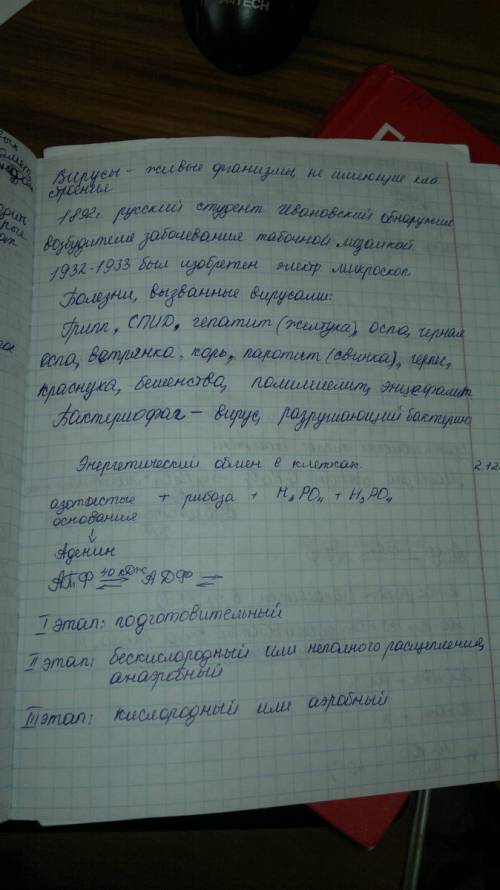 Вирусы - живые организмы, не имеющие кле
строения
1892г русский студент Ивановский обнаружил
возбудителя заболевания табачной мозаикой
1932-1933 был изобретен электр. микроскоп
Болезни, вызванные вирусами:
Грипп, СПИД, гепатит (желтуха), оспа, черная
оспа, ветрянка, корь, паротит (свинка), герпес,
краснуха, бешенство, полимиелит, энцефалит
Бактериофаг - вирус, разрушающий бактерию
Энергетический обмен в клетках. 2.12
азотистые + рибоза + H₃PO₄ + H₃PO₄
основания
↓
Аденин
АТФ 40 кДж ⇌ АДФ ⇌
I этап: подготовительный
II этап: бескислородный или неполного расщепления,
анаэробный
III этап: кислородный или аэробный